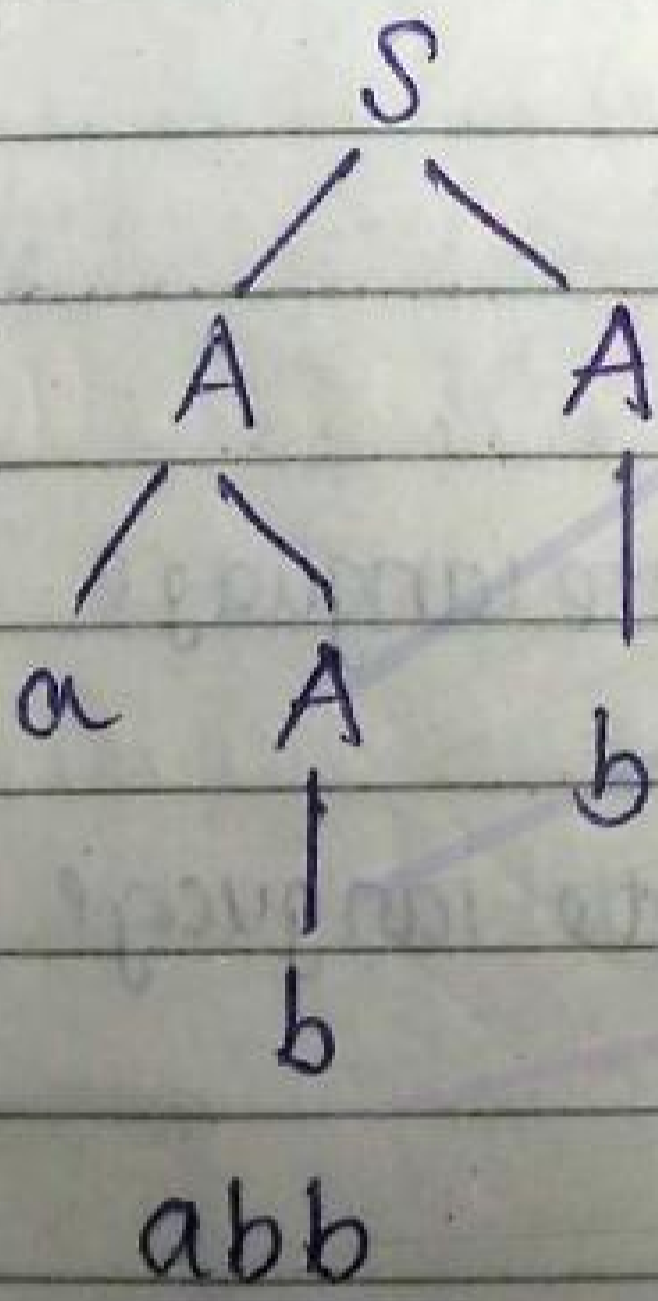 S
A A
a A b
b
abb